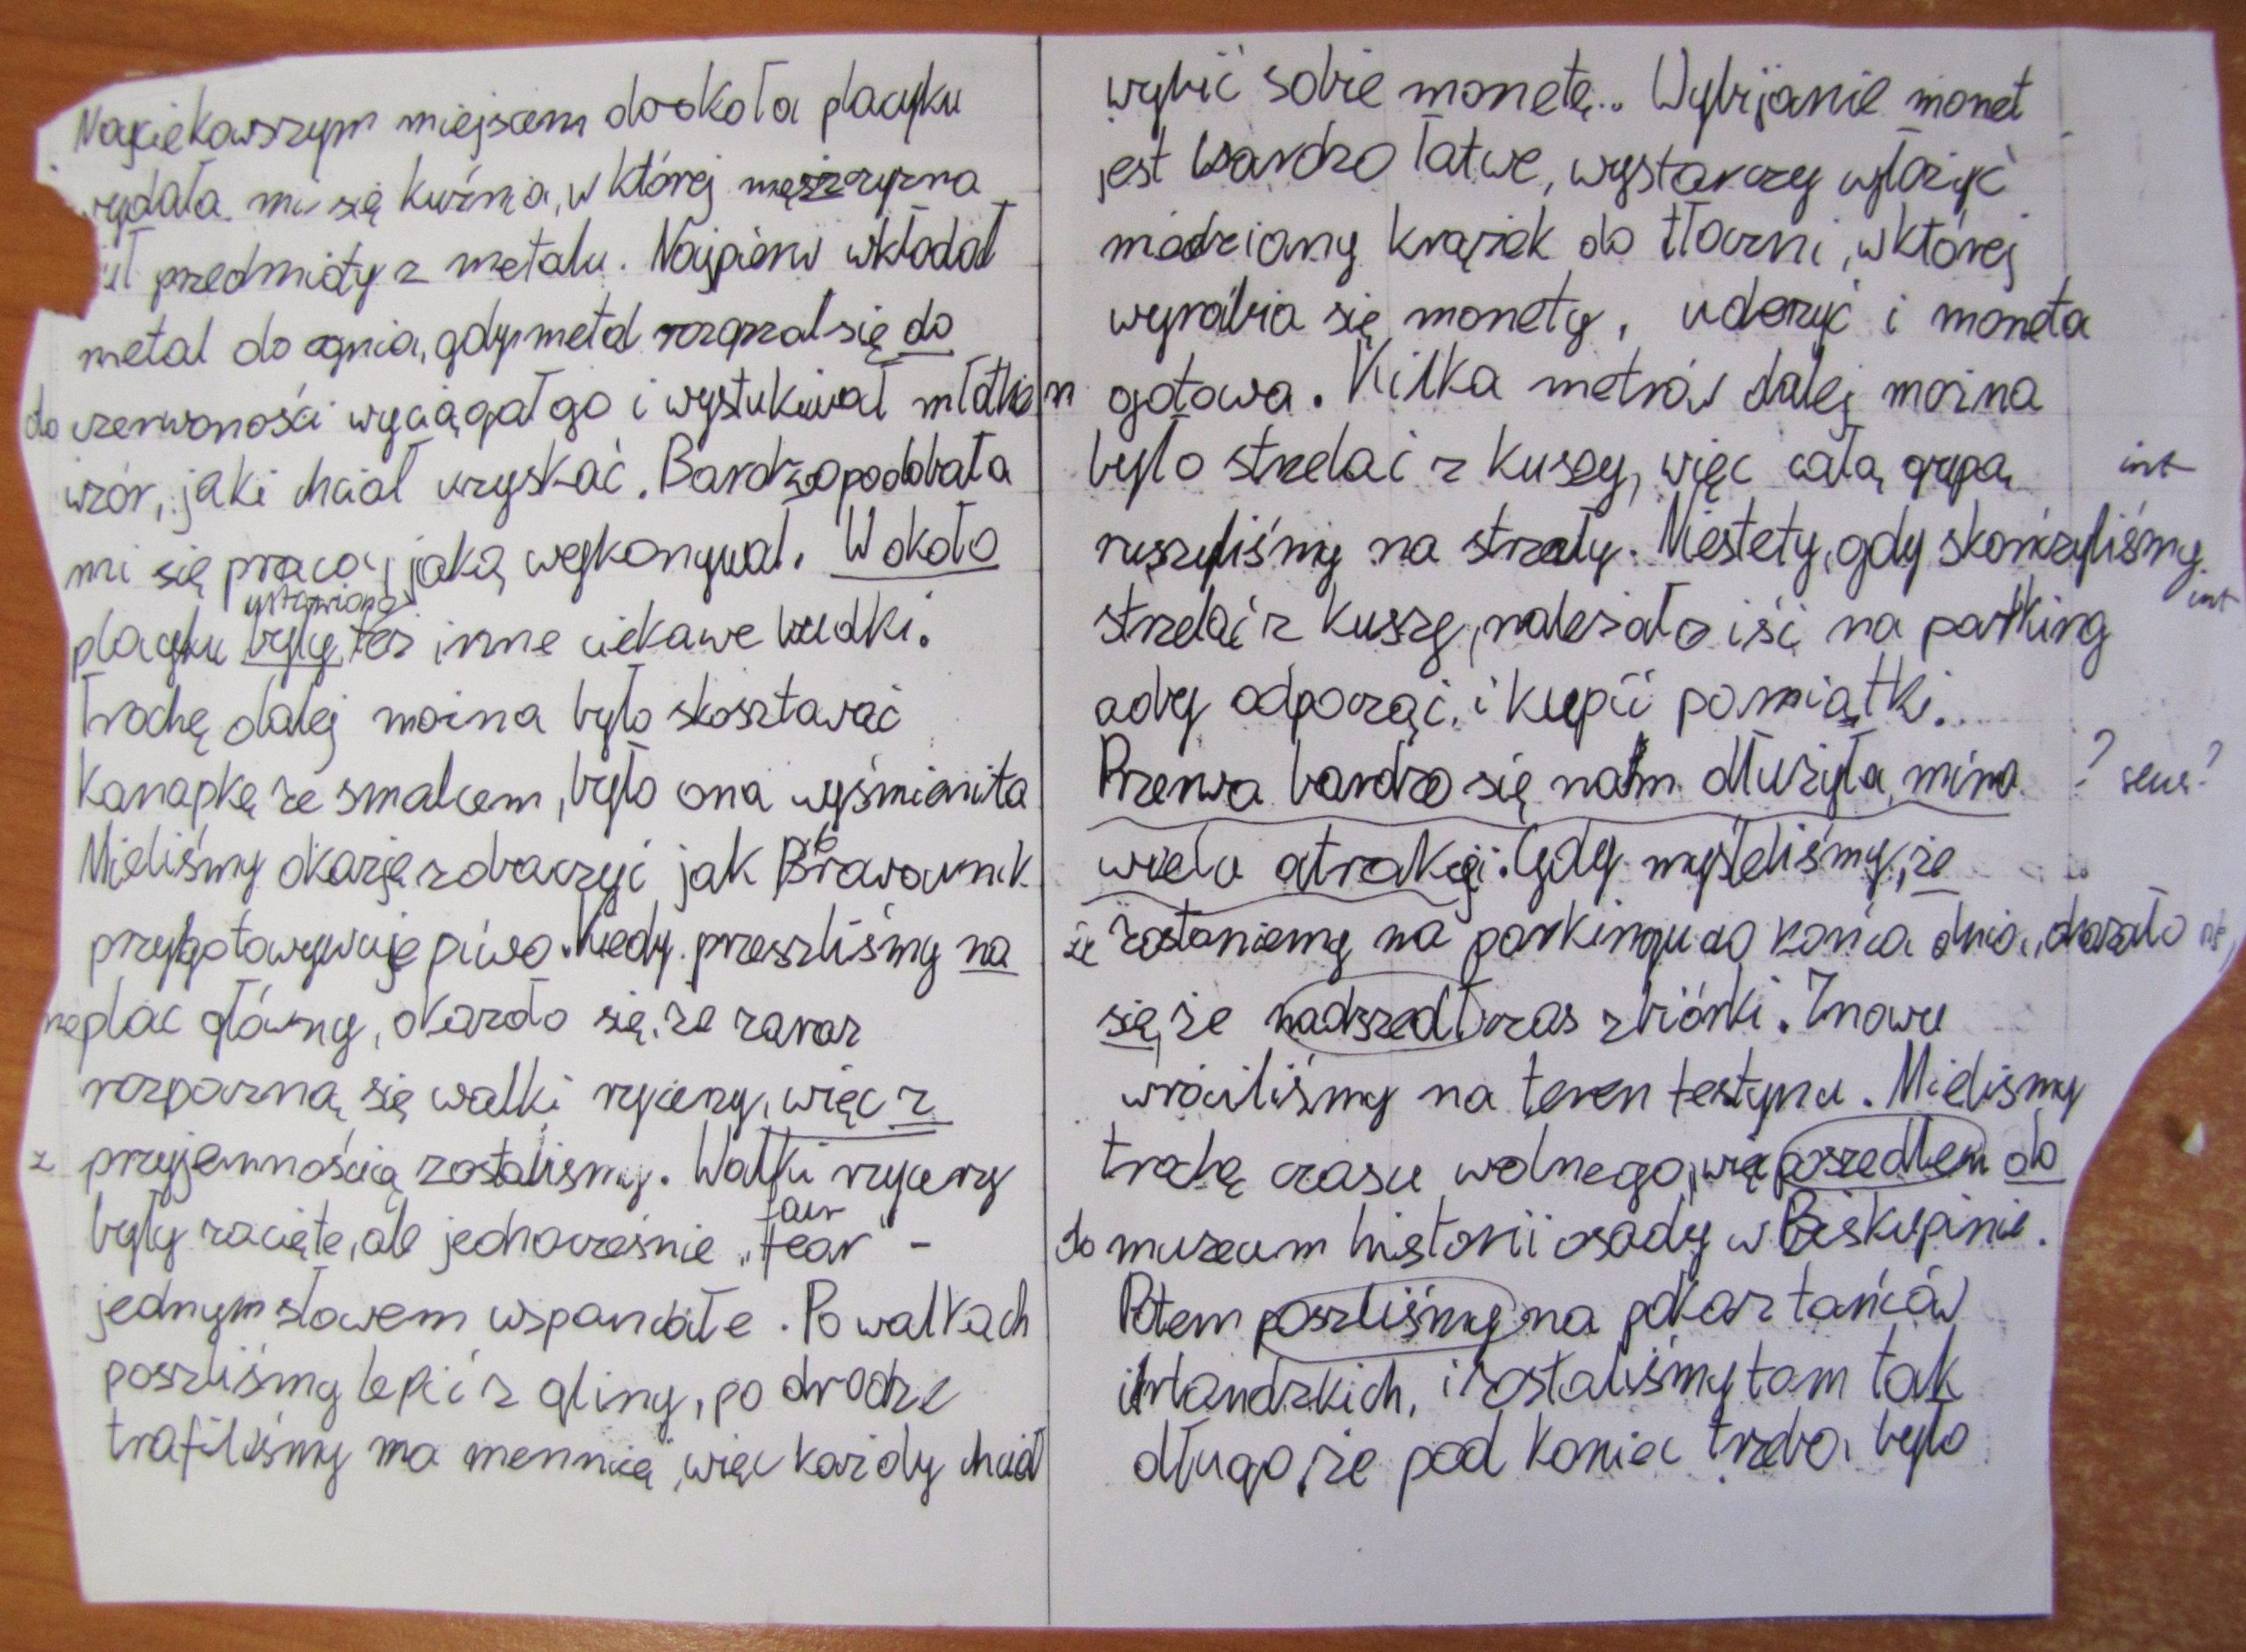 Najciekawszym miejscem dookoła placyku
wydała mi się kuźnia, w której mężczyzna
przedmioty z metalu. Najpierw wkładał
metal do ognia, gdy metal rozgrzał się do
do czerwoności wyciągał go i wystukiwał młotkiem
wzór, jaki chciał uzyskać. Bardzo podobała
mi się praca, jaką wykonywał. W około
ustawione
placyku były też inne ciekawe budki.
Trochę dalej można było skosztować
kanapkę ze smalcem, było ona wyśmienita
Mieliśmy okazję zobaczyć jak Browarnik
przygotowywuje piwo. Kiedy przeszliśmy na
na plac główny, okazało się, że zaraz
rozpoczną się walki rycerzy, więc z
z przyjemnością zostaliśmy. Walki rycerzy
fair
były zacięte, ale jednocześnie „fear" -
jednym słowem wspaniałe. Po walkach
poszliśmy lepić z gliny, po drodze
trafiliśmy na mennicę, więc każdy chciał
wybić sobie monetę.. Wybijanie monet
jest bardzo łatwe, wystarczy włożyć
miedziany krążek do tłoczni, w której
wyrabia się monety, uderzyć i moneta
gotowa. Kilka metrów dalej można
było strzelać z kuszy, więc całą grupą int
ruszyliśmy na strzały. Niestety, gdy skończyliśmy
int
strzelać z kuszy, należało iść na parking
aby odpocząć, i kupić pamiątki.
Przerwa bardzo się nam dłużyła, mimo ? sens?
wielu atrakcji. Gdy myśleliśmy, że
że zostaniemy na parkingu do końca dnia, okazało
się, że nadszedł czas zbiórki. Znowu
wróciliśmy na teren festynu. Mieliśmy
trochę czasu wolnego, więc poszedłem do
do muzeum historii osady w Biskupinie.
Potem poszliśmy na pokaz tańców
irlandzkich, i zostaliśmy tam tak
długo, że pod koniec trzeba było